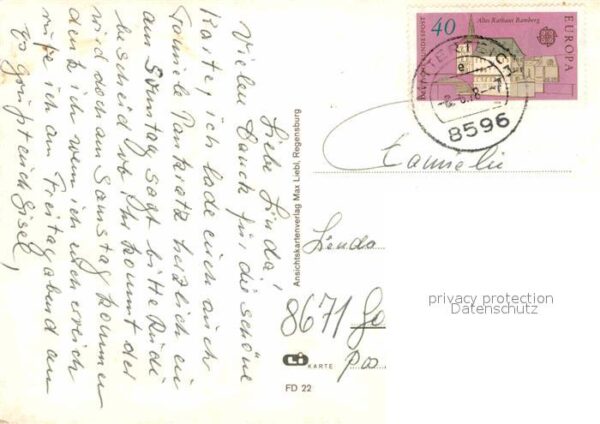 Liebe Linda!
Vielen Dank für die schöne
Karte, ich lade euch auch
Familie Pankratz herzlich ein
am Sonntag sagt bitte Rudi
bescheid ob Ihr kommt der
wird doch am Samstag kommen
denk ich wenn ich euch erreich
rufe ich am Freitag abend an
Es grüßt euch Gisel,
Ansichtskartenverlag Max Liebl, Regensburg
40
Altes Rathaus Bamberg
EUROPA
BUNDESPOST
MITTERTEICH
8596
Linda
8671
privacy protection
Datenschutz
KARTE
FD 22